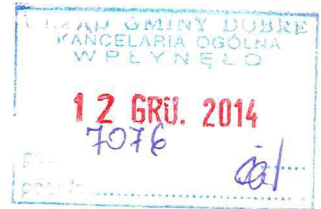 URZĄD GMINY DOBRE
KANCELARIA OGÓLNA
WPŁYNĘŁO
12 GRU. 2014
7076